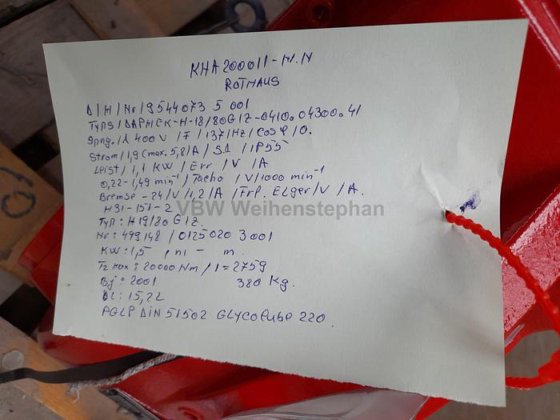 KHA200011-H.N
ROTHAUS
D/H/Nr/9544073 5 001
Typ S/DAPHCK-H-18/80G12-0410.04300.41
Spng./λ 400 V /F/137/Hz/Cos φ/0.
Strom/1,9(max. 5,8)A/S1 /IP55
Leist/1,1 KW/Err /V /A
0,22-1,49 min⁻¹/Tacho /V/1000 min⁻¹
Bremse-24/V/1,2/A/Trf. ELger/V/A.
H31-151-2
VBW Weihenstephan
Typ: H19/80G12
Nr: 499148/0125020 3001
KW:1,5 , n1 - m.
T2 max: 20000Nm/i=2759
Bj = 2001 380 Kg.
ÖL: 15,2L
PGLP DIN 51502 GLYCOlube 220.